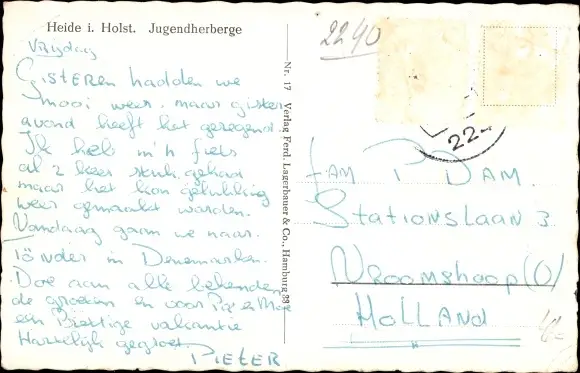 Heide i. Holst. Jugendherberge
Vrijdag
Gisteren hadden we
mooi weer. maar gister
avond heeft het geregend.
Ik heb m'n fiets
al 2 keer stuk gehad
maar het kon gelukkig
weer gemaakt worden.
Vandaag gaan we naar
Tönder in Denemarken.
Doe aan alle bekenden
de groeten en voor Pa en Moe
een Prettige vakantie
Hartelijk gegroet.
PIETER
Nr. 17 Verlag Ferd. Lagerbauer & Co., Hamburg 23
2240
22
FAM P DAM.
STATIONSLAAN 3
VROOMSHOOP (O)
HOLLAND